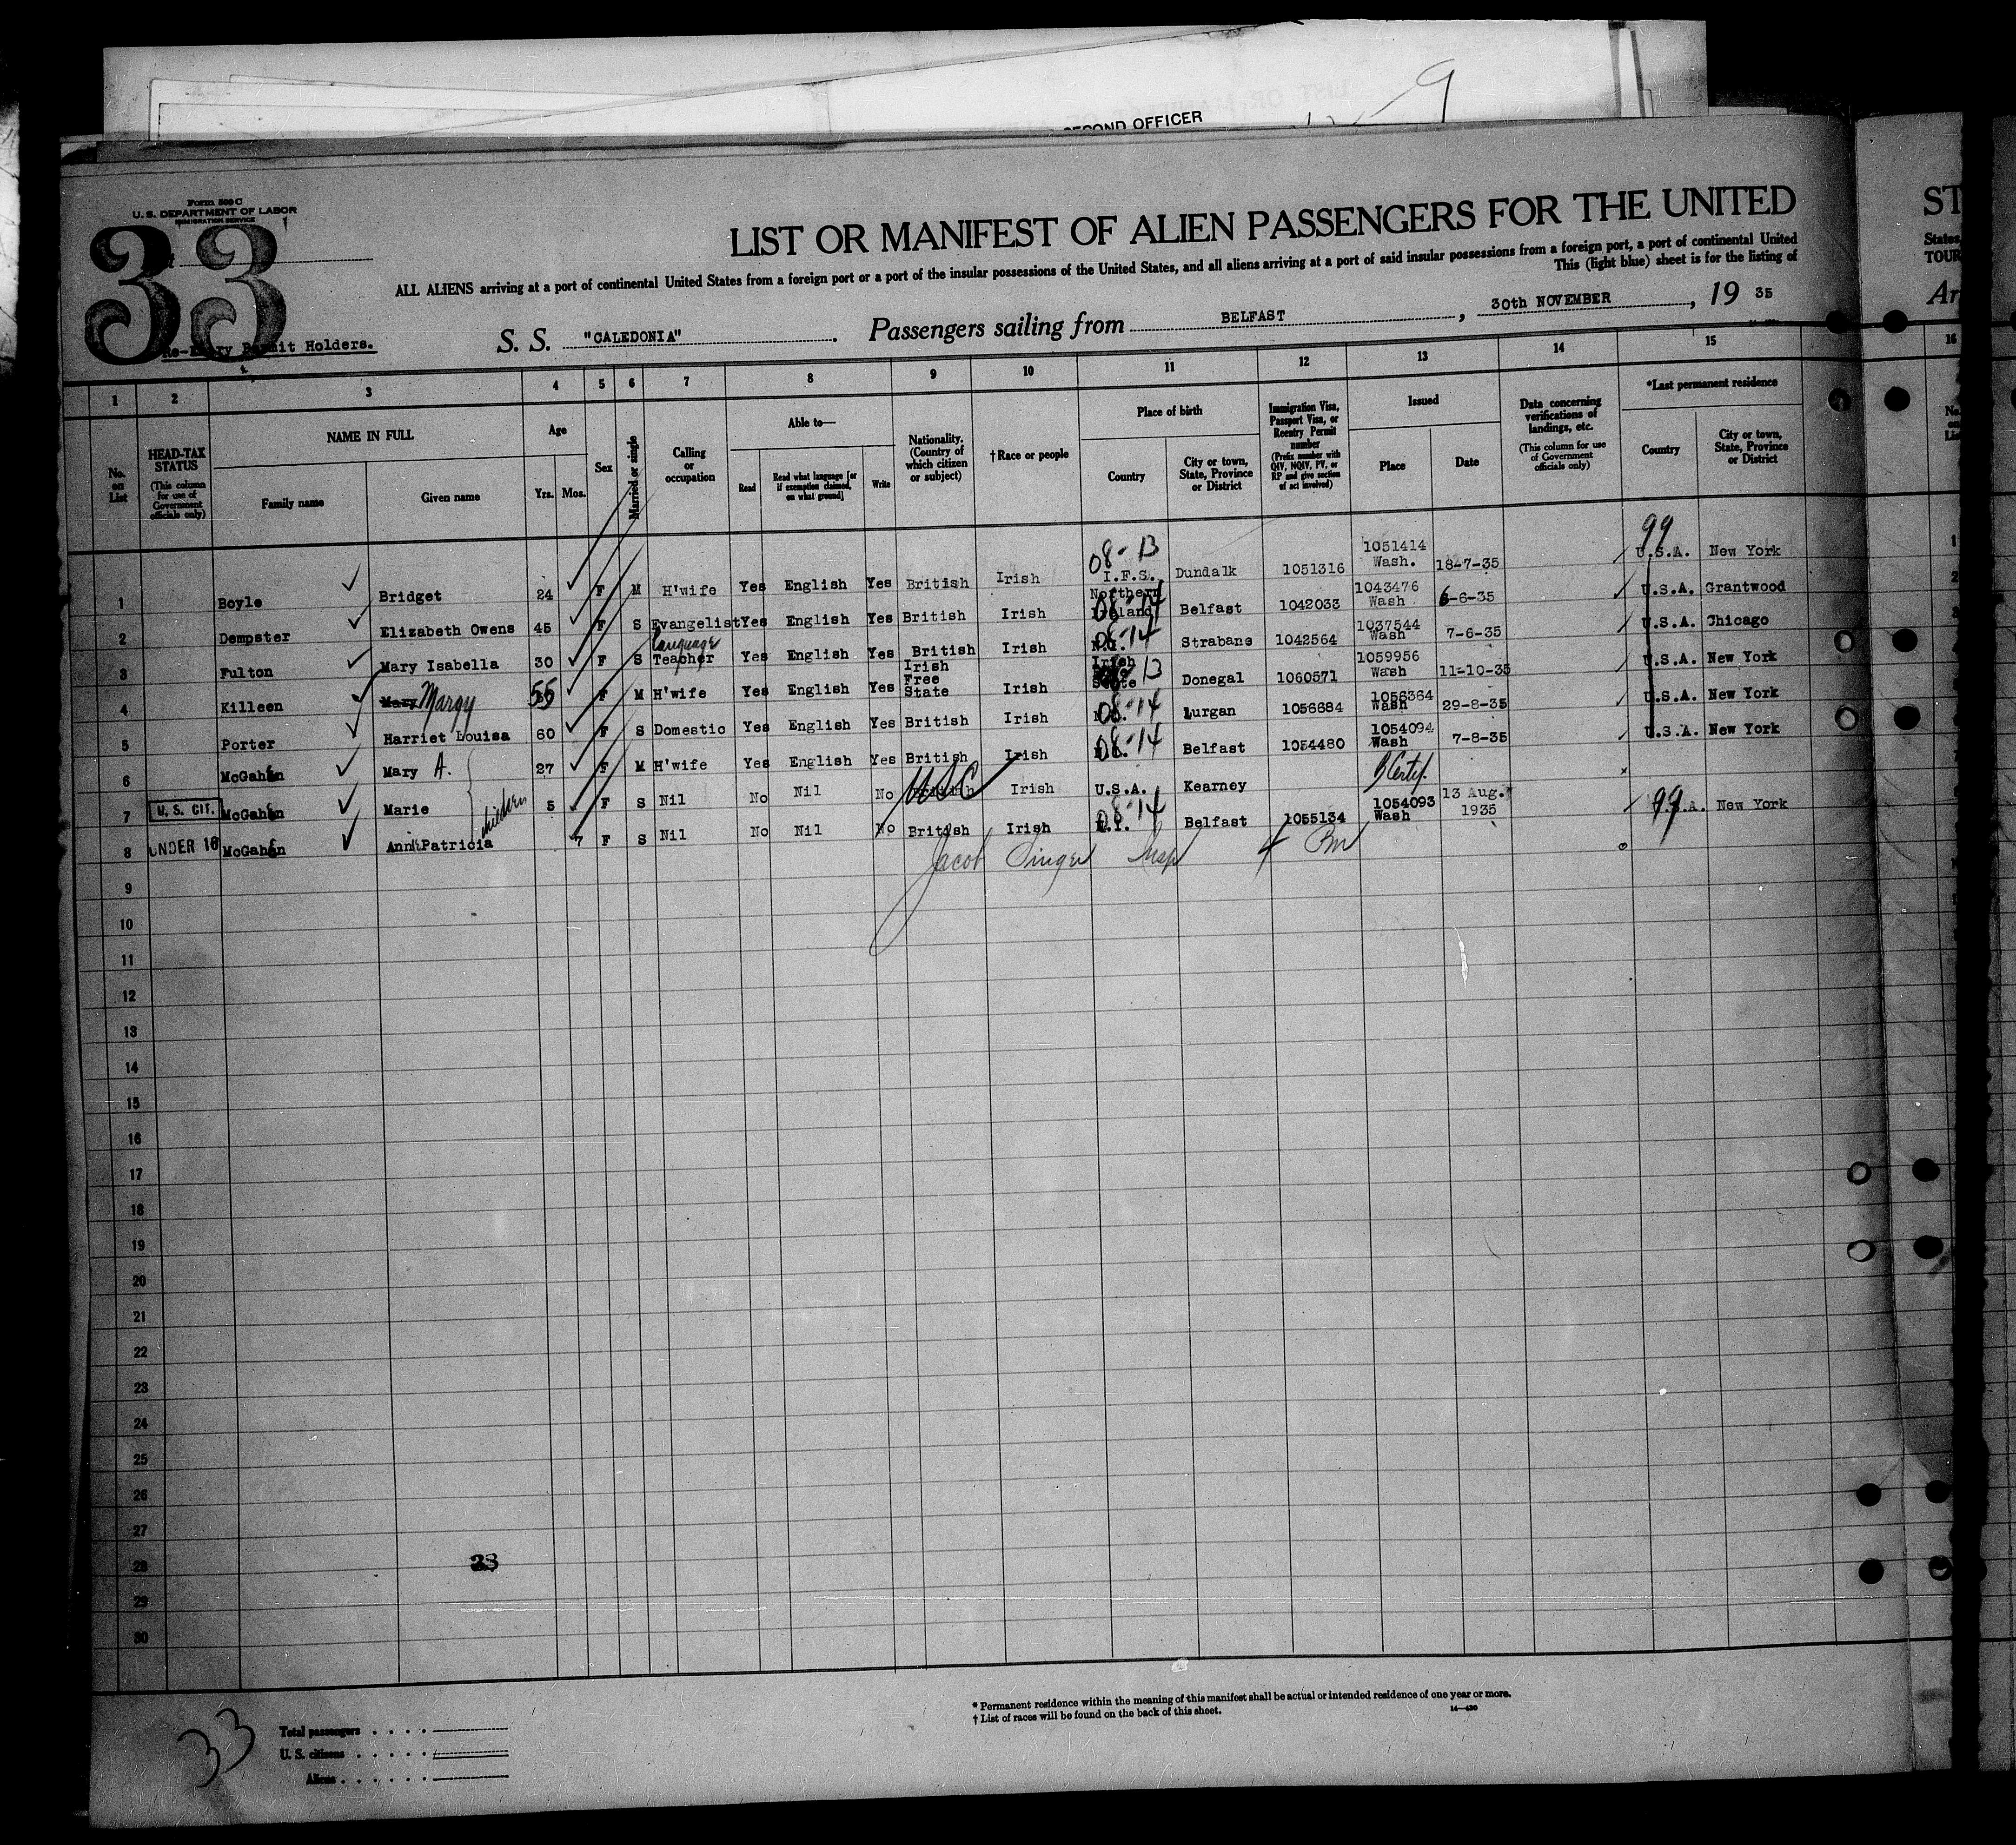 SECOND OFFICER
9
Form 500 C
U. S. DEPARTMENT OF LABOR
IMMIGRATION SERVICE
33
LIST OR MANIFEST OF ALIEN PASSENGERS FOR THE UNITED
ST
ALL ALIENS arriving at a port of continental United States from a foreign port or a port of the insular possessions of the United States, and all aliens arriving at a port of said insular possessions from a foreign port, a port of continental United
States,
This (light blue) sheet is for the listing of
TOUR
Re-Entry Permit Holders.
S. S. "CALEDONIA". Passengers sailing from BELFAST, 30th NOVEMBER, 19 35
Ar
1 2 3 4 5 6 7 8 9 10 11 12 13 14 15 16
No. on List
HEAD-TAX STATUS (This column for use of Government officials only)
NAME IN FULL
Family name
Given name
Age
Yrs. Mos.
Sex
Married or single
Calling or occupation
Able to—
Read
Read what language [or if exemption claimed, on what ground]
Write
Nationality. (Country of which citizen or subject)
† Race or people
Place of birth
Country
City or town, State, Province or District
Immigration Visa, Passport Visa, or Reentry Permit number (Prefix number with QIV, NQIV, PV, or RP and give section of act involved)
Issued
Place
Date
Data concerning verifications of landings, etc. (This column for use of Government officials only)
*Last permanent residence
Country
City or town, State, Province or District
1 Boyle Bridget 24 F M H'wife Yes English Yes British Irish 08-13 I.F.S. Dundalk 1051316 1051414 Wash. 18-7-35 99 U.S.A. New York
2 Dempster Elizabeth Owens 45 F S Evangelist Yes English Yes British Irish Northern Ireland 08-14 Belfast 1042033 1043476 Wash 6-6-35 U.S.A. Grantwood
3 Fulton Mary Isabella 30 F S language Teacher Yes English Yes British Irish 08-14 Strabane 1042564 1037544 Wash 7-6-35 U.S.A. Chicago
4 Killeen Mary Margy 55 F M H'wife Yes English Yes Irish Free State Irish Irish State 13 Donegal 1060571 1059956 Wash 11-10-35 U.S.A. New York
5 Porter Harriet Louisa 60 F S Domestic Yes English Yes British Irish 08-14 Lurgan 1056684 1056364 Wash 29-8-35 U.S.A. New York
6 McGahan Mary A. 27 F M H'wife Yes English Yes British Irish 08-14 Belfast 1054480 1054094 Wash 7-8-35 U.S.A. New York
7 U. S. CIT. McGahan Marie children 5 F S Nil No Nil No British USC Irish U.S.A. Kearney
8 UNDER 16 McGahan Ann Patricia 7 F S Nil No Nil No British Irish N.I. 08-14 Belfast 1055134 1054093 Wash 13 Aug. 1935 99 New York
Jacob Singer Insp
9
10
11
12
13
14
15
16
17
18
19
20
21
22
23
24
25
26
27
28
29
30
33
Total passengers
U. S. citizens
Aliens
* Permanent residence within the meaning of this manifest shall be actual or intended residence of one year or more.
† List of races will be found on the back of this sheet.
14—430